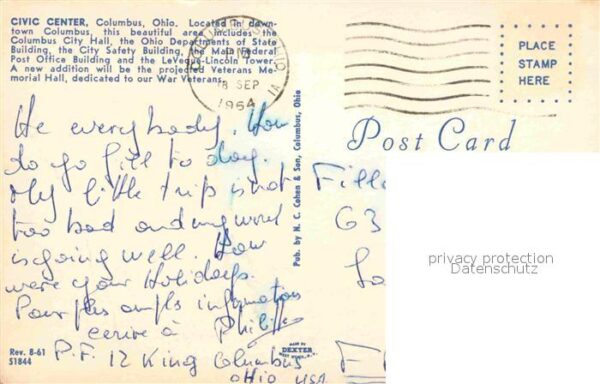 CIVIC CENTER, Columbus, Ohio. Located in down-
town Columbus, this beautiful area includes the
Columbus City Hall, the Ohio Departments of State
Building, the City Safety Building, the Main Federal
Post Office Building and the LeVeque-Lincoln Tower.
A new addition will be the projected Veterans Me-
morial Hall, dedicated to our War Veterans.
18 SEP
1964
PLACE
STAMP
HERE
Post Card
He everybody. How
do go fill to day.
My little trip is not
too bad and my work
is going well. How
were your Holidays.
Pour plus amples informations
ecrire à Philippe
P.F. 12 King Columbus
OHIO USA
Pub. by N. C. Cohen & Son, Columbus, Ohio
63
privacy protection
Datenschutz
MADE BY
DEXTER
WEST NYACK, N.Y.
Rev. 8-61
51844